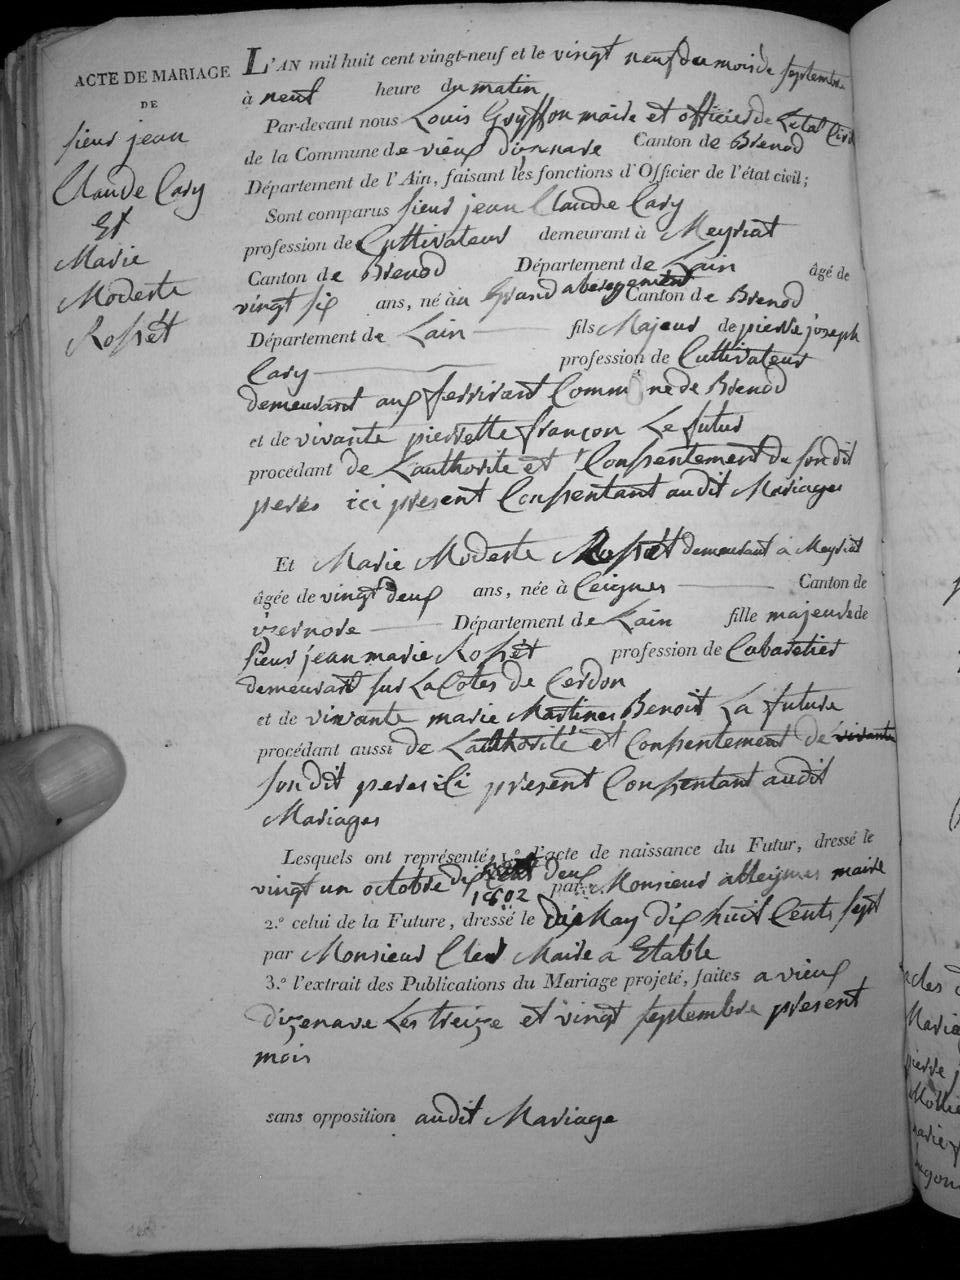 ACTE DE MARIAGE
DE
sieur jean
Claude Cary
Et
Marie
Modeste
Rossét
L'AN mil huit cent vingt-neuf et le vingt neuf du mois de septembre
à neuf heure du matin
Par-devant nous Louis Gryffon maire et officier de Letat Civil
de la Commune de vieux dizenave Canton de Brenod
Département de l'Ain, faisant les fonctions d'Officier de l'état civil;
Sont comparus sieur jean Claude Cary
profession de Cultivateur demeurant à Meyriat
Canton de Brenod Département de Lain âgé de
vingt six ans, né au Grand abergement Canton de Brenod
Département de Lain fils Majeur de pierre joseph
Cary profession de Cultivateur
demeurant aux ferrirant Commune de Brenod
et de vivante pierrette françon Le futur
procédant de Lauthorité et Consentement du son dit
peres ici present Consentant audit Mariages
Et Marie Modeste Rossét demeurant a Meyriat
âgée de vingt deux ans, née à Ceignes Canton de
izernore Département de Lain fille majeure de
sieur jean marie Rossét profession de Cabaretier
demeurant sur La Cotes de Cerdon
et de vivante marie Martines Benoit La future
procédant aussi de Lauthorité et Consentement de vivante
son dit peres ici present Consentant audit
Mariages
Lesquels ont représenté, 1.° l'acte de naissance du Futur, dressé le
vingt un octobre dix cent deux par Monsieur alleymes maire
1802
2.° celui de la Future, dressé le dix May dix huit Cents sept
par Monsieur Clerd Maire a Etable
3.° l'extrait des Publications du Mariage projeté, faites a vieux
dizenave Les treize et vingt septembre present
mois
sans opposition audit Mariage